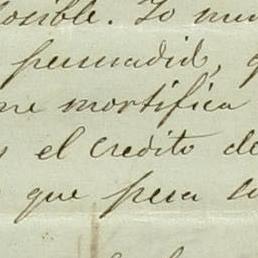 posible. Yo
persuadido, q
me mortifica
y el credito de
que pesa